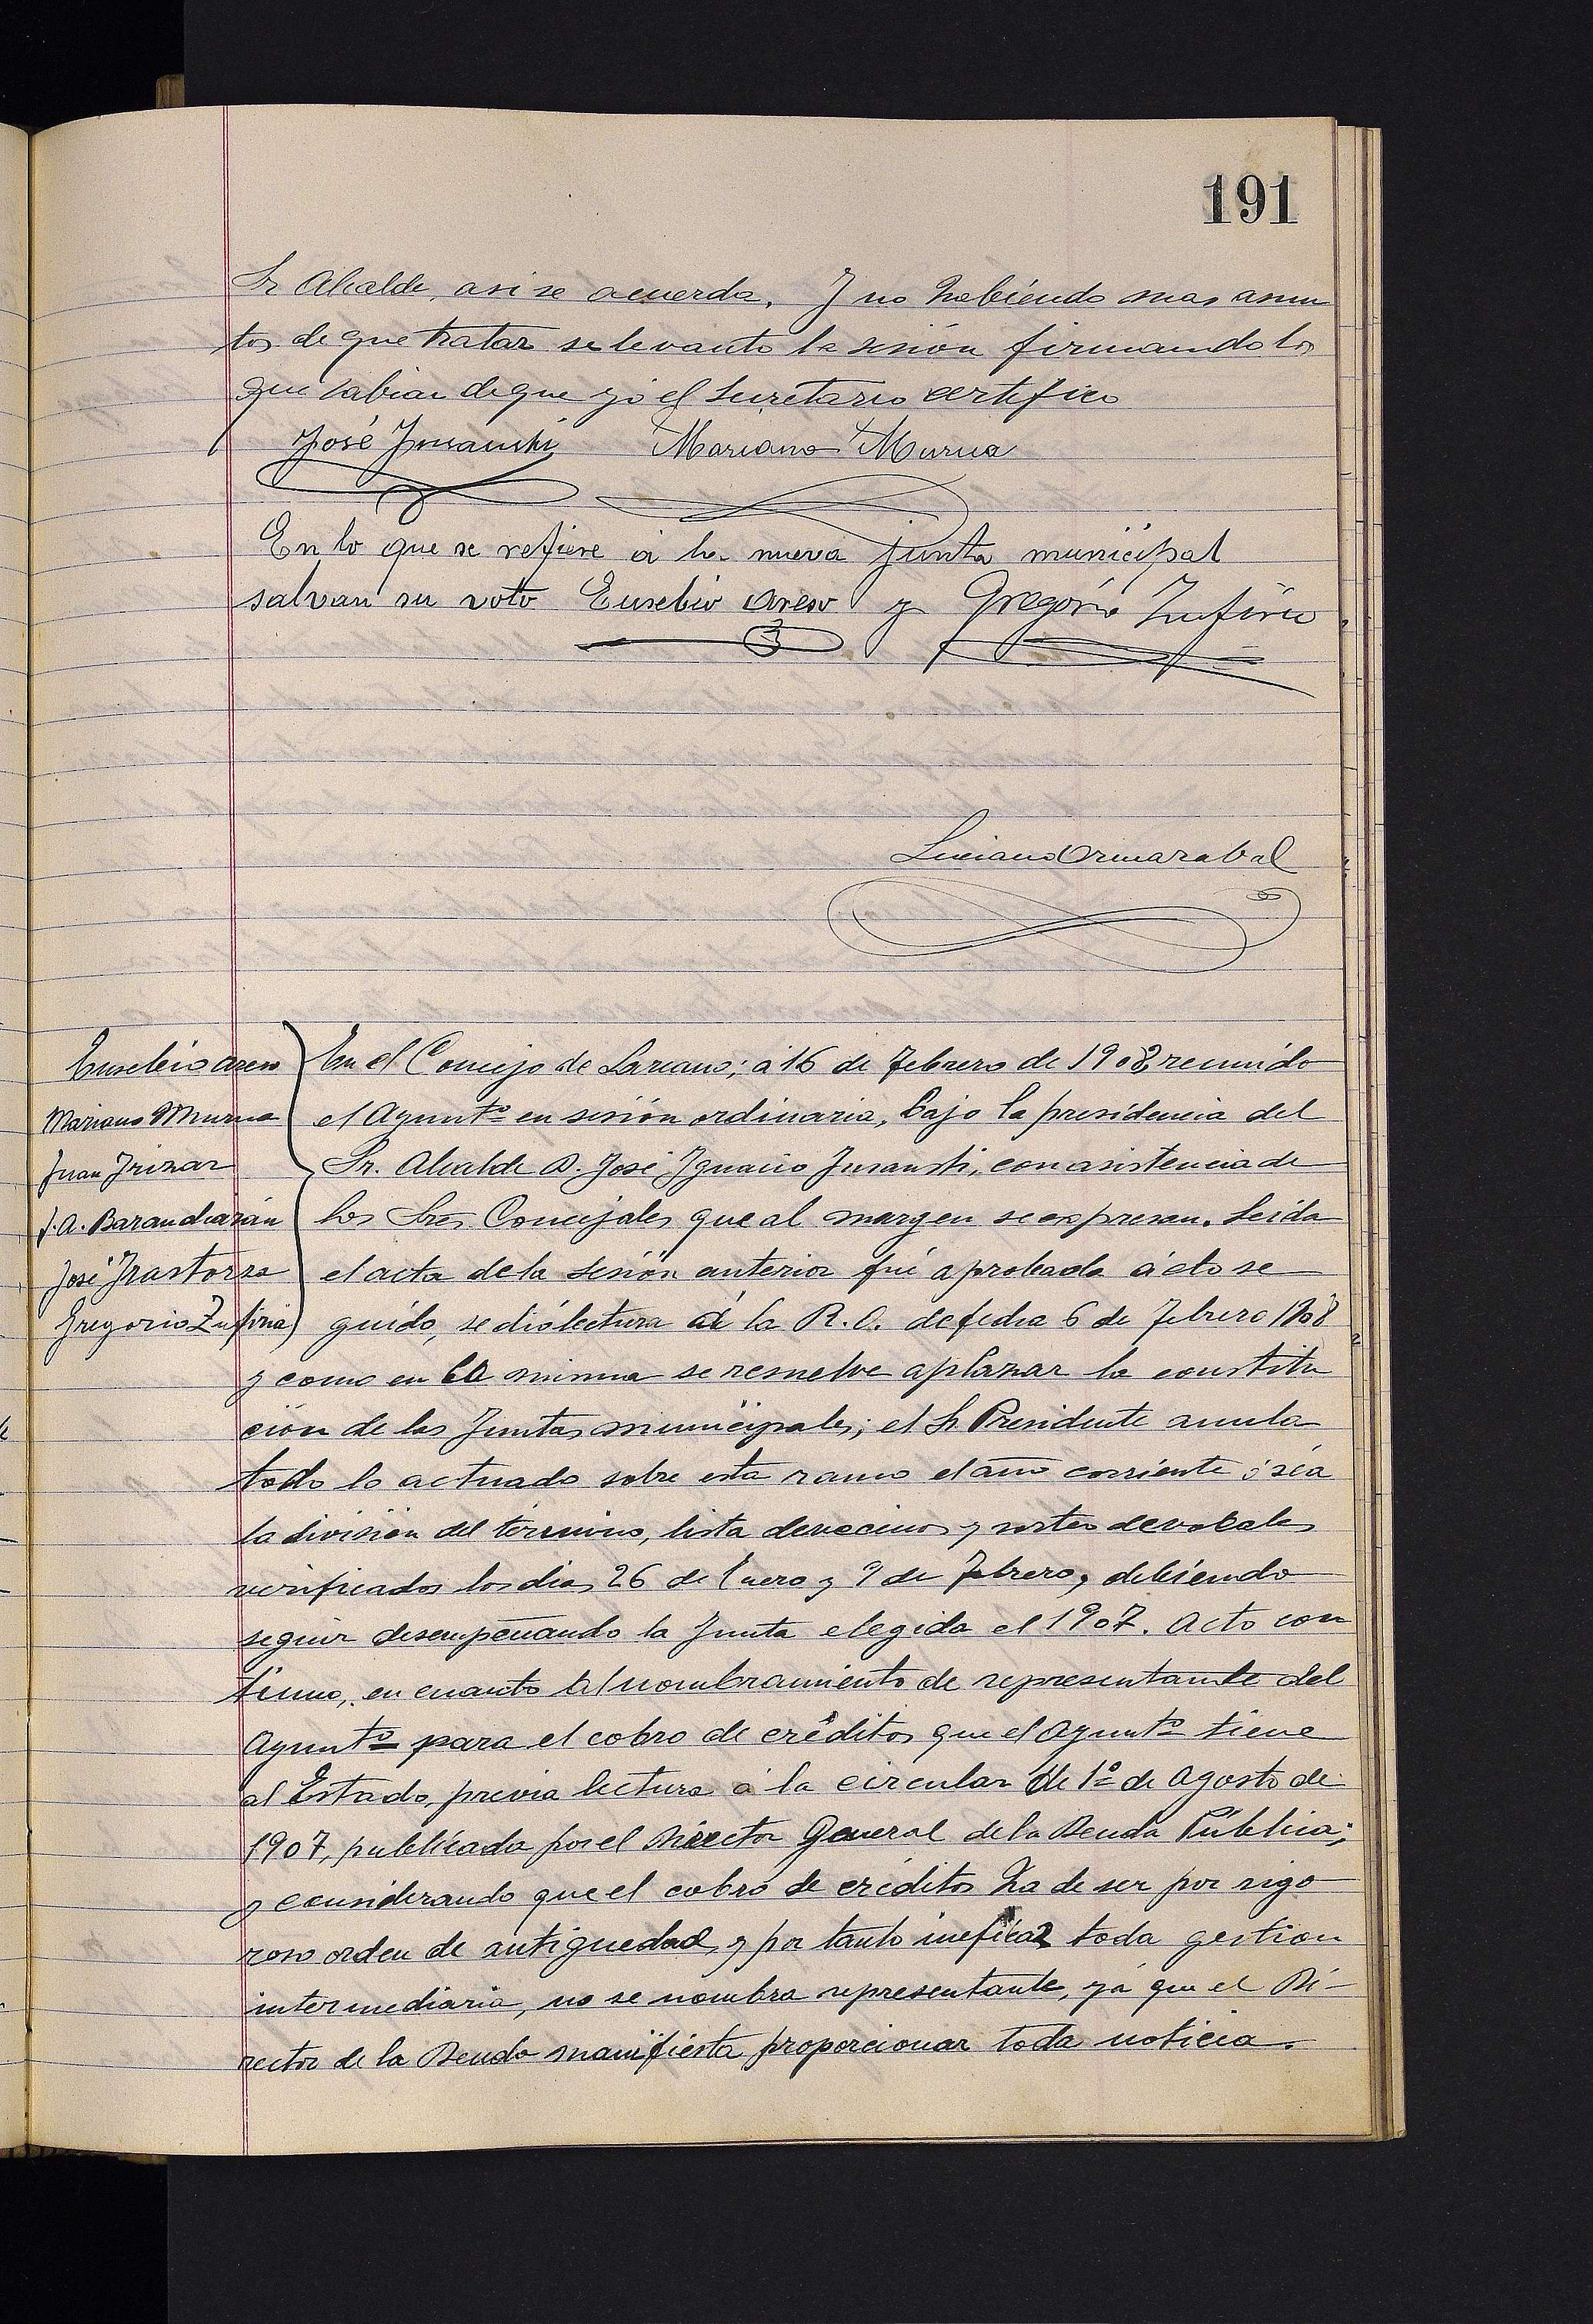 191
Sr Alcalde, asi se acuerda. Y no habiendo mas asun
tos de que tratar se levanto la sesión firmando los
que sabian de que yó el Secretario certifico
José Insausti Mariano Murua
En lo que se refiere á la nueva junta municipal
salvan su voto Eusebio Areso y Gregorio Zufiria
Luciano Ormazabal
Eusebio Areso
Mariano Murua
Juan Irizar
J. A. Barandiarán
José Irastorza
Gregorio Zufiria
En el Concejo de Lazcano; á 16 de Febrero de 1908, reunido
el Ayuntº en sesión ordinaria, bajo la presidencia del
Sr. Alcalde D. José Ignacio Insausti, con asistencia de
los Sres Concejales que al margen se expresan. Leida
el acta de la sesión anterior fué aprobada ácto se
guido, se dió lectura á la R. O. de fecha 6 de Febrero 1908
y como en la misma se resuelve aplazar la constitu
ción de las Juntas municipales; el Sr. Presidente anula
todo lo actuado sobre esta ramo el año corriente ó sea
la división del término, lista de vecinos y sorteo de vocales
verificados los dias 26 de Enero y 9 de Febrero, debiendo
seguir desempeñando la Junta elegida el 1907. Acto con
tinuo, en cuanto al nombramiento de representante del
Ayuntº para el cobro de créditos que el Ayuntº tiene
al Estado, previa lectura á la circular de 1º de Agosto de
1907, publicada por el Director General de la Deuda Pública;
y considerando que el cobro de créditos ha de ser por rigo
roso orden de antiguedad, y por tanto ineficaz toda gestion
intermediaria, no se nombra representante, yá que el Di-
rector de la Deuda manifiesta proporcionar toda noticia.